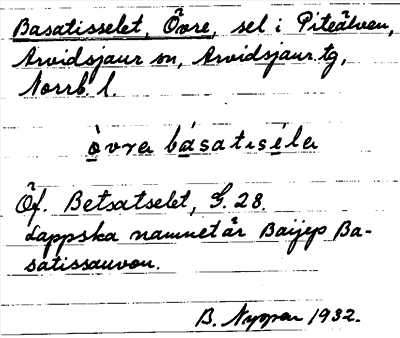 Basatisselet, Övre, sel i Piteälven,
Arvidsjaur sn, Arvidsjaur tg,
Norrb. l.
òvrɐ básatiséla
Öf. Betsatselet, G. 28.
Lappska namnet är Baijep Ba-
satissauvon.
B. 1932.